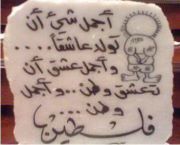 أجمل شئ أن
تولد عاشقاً....
وأجمل عشق أن
تعشق وطن... وأجمل
وطن...
فلسطين